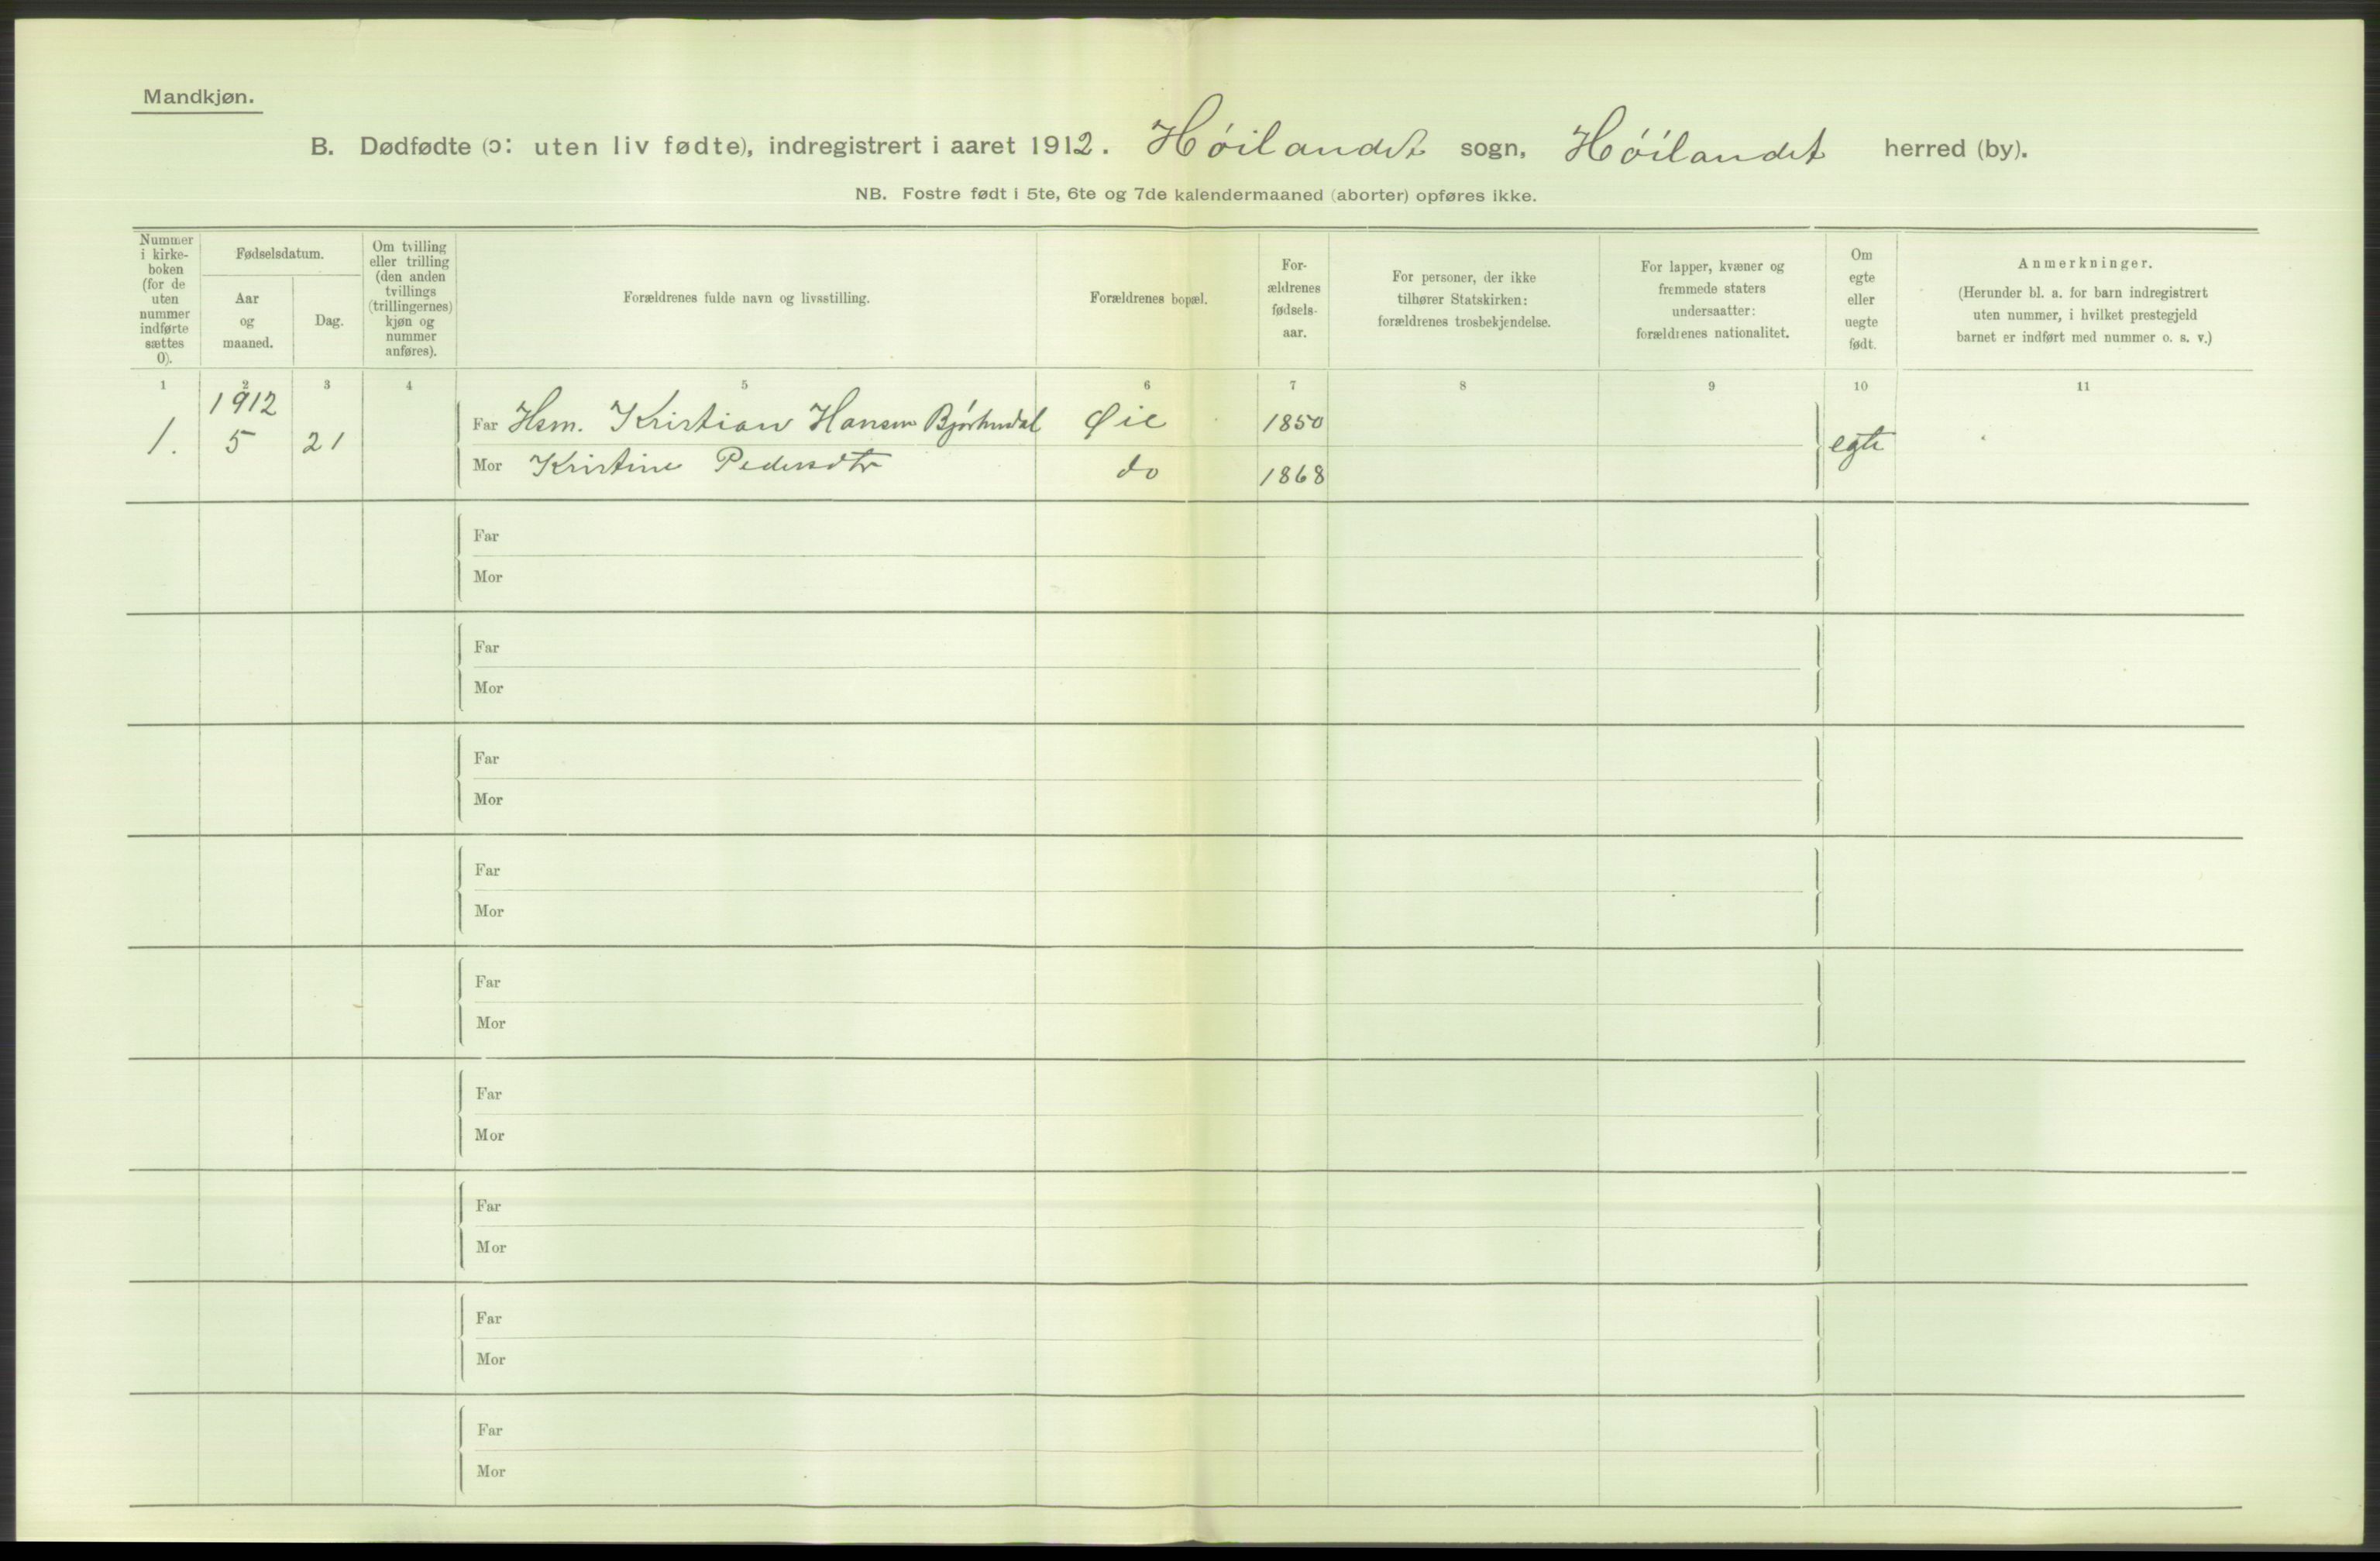 Mandkjøn.
B. Dødfødte (ɔ: uten liv fødte), indregistrert i aaret 1912. Høilandet sogn, Høilandet herred (by).
NB. Fostre født i 5te, 6te og 7de kalendermaaned (aborter) opføres ikke.
Nummer
i kirke-
boken
(for de
uten
nummer
indførte
sættes
0).
Fødselsdatum.
Aar
og
maaned.
Dag.
Om tvilling
eller trilling
(den anden
tvillings
(trillingernes)
kjøn og
nummer
anføres).
Forældrenes fulde navn og livsstilling.
Forældrenes bopæl.
For-
ældrenes
fødsels-
aar.
For personer, der ikke
tilhører Statskirken:
forældrenes trosbekjendelse.
For lapper, kvæner og
fremmede staters
undersaatter:
forældrenes nationalitet.
Om
egte
eller
uegte
født.
Anmerkninger.
(Herunder bl. a. for barn indregistrert
uten nummer, i hvilket prestegjeld
barnet er indført med nummer o. s. v.)
1 2 3 4 5 6 7 8 9 10 11
1912
1. 5 21
Far Hsm. Kristian Hansen Øie 1850
egte
Mor Kristine Pedersdtr do 1868
Far
Mor
Far
Mor
Far
Mor
Far
Mor
Far
Mor
Far
Mor
Far
Mor
Far
Mor
Far
Mor